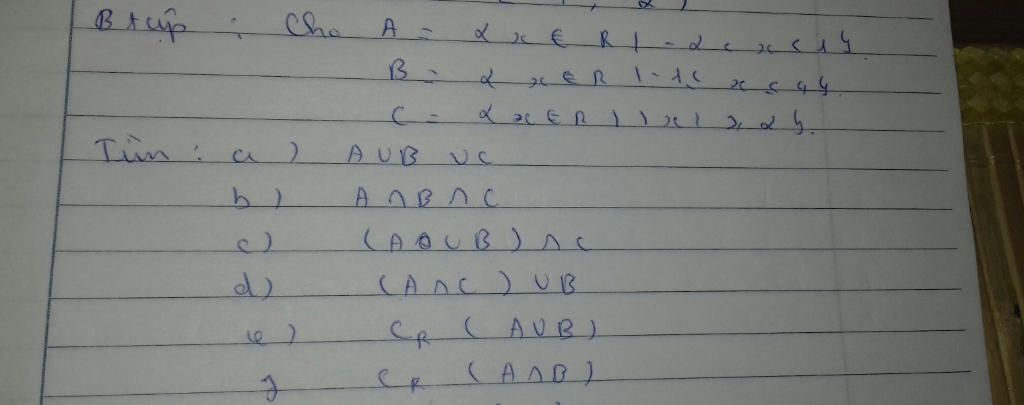 B tập : Cho A = { x ∈ R | - 2 < x < 1 }.
B = { x ∈ R | - 1 ≤ x ≤ 4 }.
C = { x ∈ R | | x | ≥ 2 }.
Tìm : a ) A ∪ B ∪ C
b ) A ∩ B ∩ C
c ) ( A ∪ B ) ∩ C
d ) ( A ∩ C ) ∪ B
e ) C_R ( A ∪ B )
C_R ( A ∩ B )